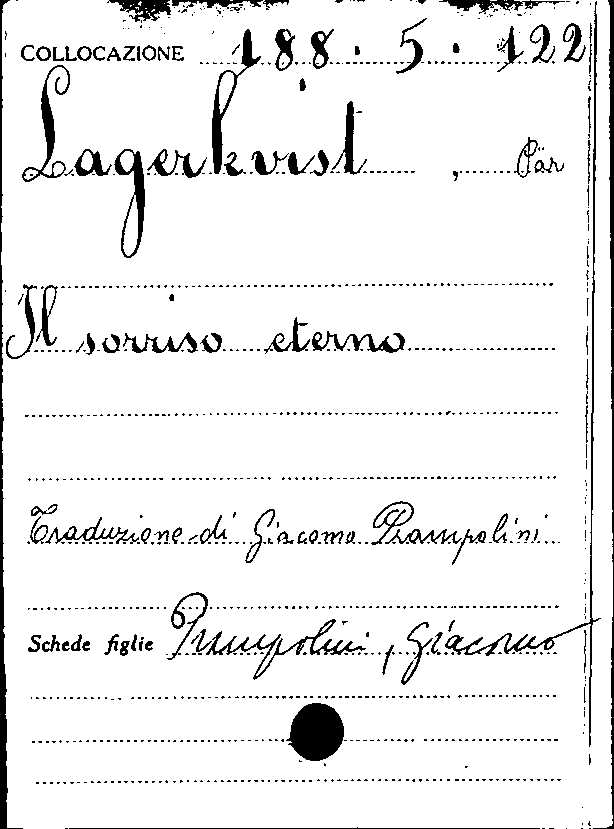 COLLOCAZIONE 188.5.122
Lagerkvist, Pär
Il sorriso eterno
Traduzione di Giacomo Prampolini
Schede figlie Prampolini, Giacomo